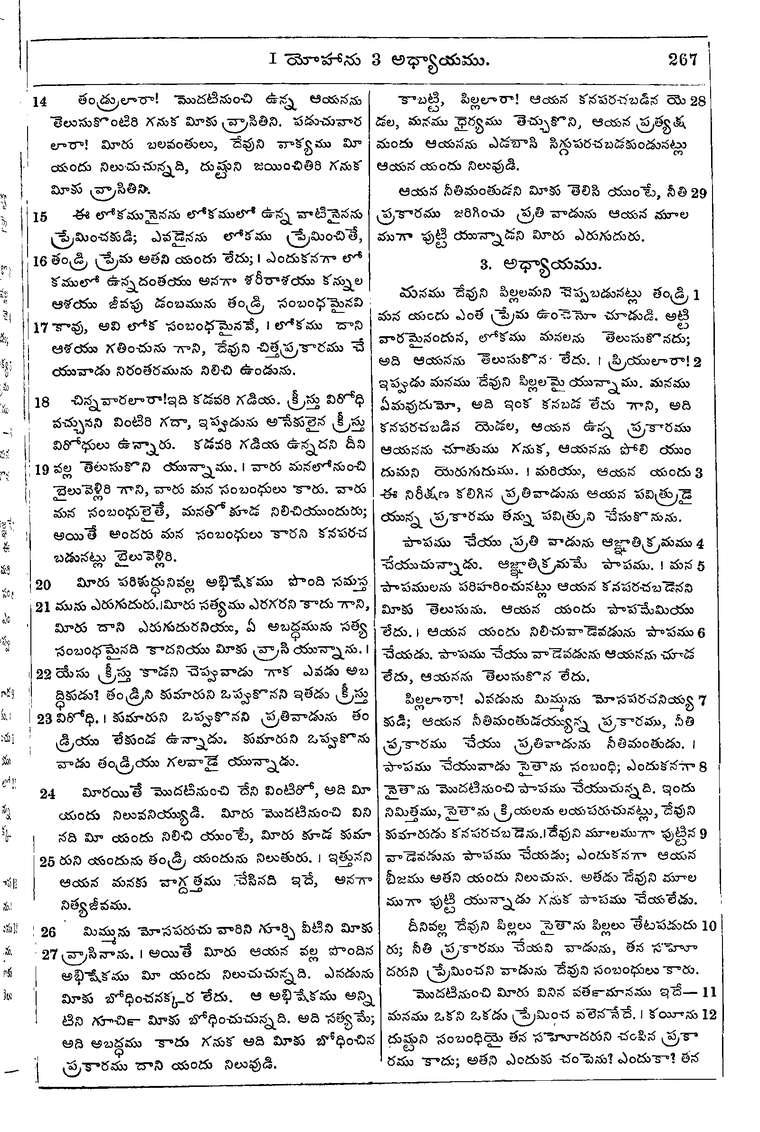 I యోహాను 3 అధ్యాయము. 267
14 తండ్రులారా! మొదటినుంచి ఉన్న ఆయనను
తెలుసుకొంటిరి గనుక మీకు వ్రాసితిని. పడుచువార
లారా! మీరు బలవంతులు, దేవుని వాక్యము మీ
యందు నిలుచుచున్నది, దుష్టుని జయించితిరి గనుక
మీకు వ్రాసితిని.
15 ఈ లోకమునైనను లోకములో ఉన్న వాటినైనను
ప్రేమించకుడి; ఎవడైనను లోకము ప్రేమించితే,
16 తండ్రి ప్రేమ అతని యందు లేదు; । ఎందుకనగా లో
కములో ఉన్నదంతయు అనగా శరీరాశయు కన్నుల
ఆశయు జీవపు డంబమును తండ్రి సంబంధమైనవి
17 కావు, అవి లోక సంబంధమైనవే, । లోకము దాని
ఆశయు గతించును గాని, దేవుని చిత్తప్రకారము చే
యువాడు నిరంతరమును నిలిచి ఉండును.
18 చిన్నవారలారా! ఇది కడవరి గడియ. క్రీస్తు విరోధి
వచ్చునని వింటిరి గదా, ఇప్పుడును అనేకులైన క్రీస్తు
విరోధులు ఉన్నారు. కడవరి గడియ ఉన్నదని దీని
19 వల్ల తెలుసుకొని యున్నాము. । వారు మనలోనుంచి
బైలువెళ్లిరి గాని, వారు మన సంబంధులు కారు. వారు
మన సంబంధులైతే, మనతో కూడ నిలిచియుందురు;
అయితే అందరు మన సంబంధులు కారని కనపరచ
బడునట్లు బైలువెళ్లిరి.
20 మీరు పరిశుద్ధునివల్ల అభిషేకము పొంది సమస్త
21 మును ఎరుగుదురు. ।మీరు సత్యము ఎరగరని కాదు గాని,
మీరు దాని ఎరుగుదురనియు, ఏ అబద్ధమును సత్య
సంబంధమైనది కాదనియు మీకు వ్రాసి యున్నాను. ।
22 యేసు క్రీస్తు కాడని చెప్పువాడు గాక ఎవడు అబ
ద్ధికుడు? తండ్రిని కుమారుని ఒప్పుకొనని ఇతడు క్రీస్తు
23 విరోధి. । కుమారుని ఒప్పుకొనని ప్రతివాడును తం
డ్రియు లేకుండ ఉన్నాడు. కుమారుని ఒప్పుకొను
వాడు తండ్రియు గలవాడై యున్నాడు.
24 మీరయితే మొదటినుంచి దేని వింటిరో, అది మీ
యందు నిలువనియ్యుడి. మీరు మొదటినుంచి విని
నది మీ యందు నిలిచి యుంటే, మీరు కూడ కుమా
25 రుని యందును తండ్రి యందును నిలుతురు. । ఇత్తునని
ఆయన మనకు వాగ్దత్తము చేసినది ఇదే, అనగా
నిత్యజీవము.
26 మిమ్మును మోసపరుచు వారిని గూర్చి వీటిని మీకు
27 వ్రాసినాను. । అయితే మీరు ఆయన వల్ల పొందిన
అభిషేకము మీ యందు నిలుచుచున్నది. ఎవడును
మీకు బోధించనక్కర లేదు. ఆ అభిషేకము అన్ని
టిని గూచిణ మీకు బోధించుచున్నది. అది సత్యమే;
అది అబద్ధము కాదు గనుక అది మీకు బోధించిన
ప్రకారము దాని యందు నిలువుడి.
కాబట్టి, పిల్లలారా! ఆయన కనపరచబడిన యె 28
డల, మనము ధైర్యము తెచ్చుకొని, ఆయన ప్రత్యక్ష
మందు ఆయనను ఎడబాసి సిగ్గుపరచబడకుండునట్లు
ఆయన యందు నిలువుడి.
ఆయన నీతిమంతుడని మీకు తెలిసి యుంటే, నీతి 29
ప్రకారము జరిగించు ప్రతి వాడును ఆయన మూల
ముగా పుట్టి యున్నాడని మీరు ఎరుగుదురు.
3. అధ్యాయము.
మనము దేవుని పిల్లలమని చెప్పబడునట్లు తండ్రి 1
మన యందు ఎంత ప్రేమ ఉంచెమో చూడుడి. అట్టి
వారమైనందున, లోకము మనలను తెలుసుకొనదు;
అది ఆయనను తెలుసుకొన లేదు. । ప్రియులారా! 2
ఇప్పుడు మనము దేవుని పిల్లలమై యున్నాము. మనము
ఏమవుదుమో, అది ఇంక కనబడ లేదు గాని, అది
కనపరచబడిన యెడల, ఆయన ఉన్న ప్రకారము
ఆయనను చూతుము గనుక, ఆయనను పోలి యుం
దుమని యెరుగుదుము. । మరియు, ఆయన యందు 3
ఈ నిరీక్షణ కలిగిన ప్రతివాడును ఆయన పవిత్రుడై
యున్న ప్రకారము తన్ను పవిత్రుని చేసుకొనును.
పాపము చేయు ప్రతి వాడును ఆజ్ఞాతిక్రమము 4
చేయుచున్నాడు. ఆజ్ఞాతిక్రమమే పాపము. । మన 5
పాపములను పరిహరించునట్లు ఆయన కనపరచబడెనని
మీకు తెలుసును. ఆయన యందు పాపమేమియు
లేదు. । ఆయన యందు నిలిచువాడెవడును పాపము 6
చేయడు. పాపము చేయు వాడెవడును ఆయనను చూడ
లేదు, ఆయనను తెలుసుకొన లేదు.
పిల్లలారా! ఎవడును మిమ్మును మోసపరచనియ్య 7
కుడి; ఆయన నీతిమంతుడయ్యున్న ప్రకారము, నీతి
ప్రకారము చేయు ప్రతివాడును నీతిమంతుడు. ।
పాపము చేయువాడు సైతాను సంబంధి; ఎందుకనగా 8
సైతాను మొదటినుంచి పాపము చేయుచున్నది. ఇందు
నిమిత్తము, సైతాను క్రియలను లయపరుచునట్లు, దేవుని
కుమారుడు కనపరచబడెను.।దేవుని మూలముగా పుట్టిన 9
వాడెవడును పాపము చేయడు; ఎందుకనగా ఆయన
బీజము అతని యందు నిలుచును. అతడు దేవుని మూల
ముగా పుట్టి యున్నాడు గనుక పాపము చేయలేడు.
దీనివల్ల దేవుని పిల్లలు సైతాను పిల్లలు తేటపడుదు 10
రు; నీతి ప్రకారము చేయని వాడును, తన సహో
దరుని ప్రేమించని వాడును దేవుని సంబంధులు కారు.
మొదటినుంచి మీరు వినిన వతణమానము ఇదే— 11
మనము ఒకని ఒకడు ప్రేమించ వలెననేదే. । కయీను 12
దుష్టుని సంబంధియై తన సహోదరుని చంపిన ప్రకా
రము కాదు; అతని ఎందుకు చంపెను? ఎందుకా? తన